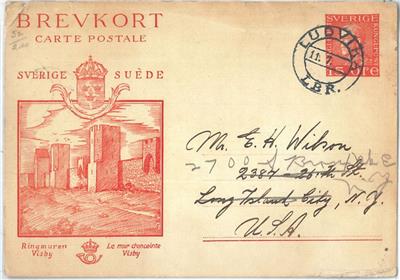 BREVKORT
CARTE POSTALE
SVERIGE SUÈDE
SVERIGE
15 ÖRE
LUDVIKA
LBR.
Mr. E. H. Wilson
2700 S
2387 - 26th St.
Long Island City, N.Y.
U.S.A.
Ringmuren
Visby
Le mur d'enceinte
Visby